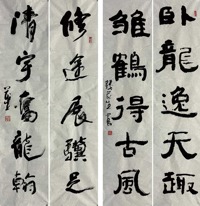 卧龍逸天趣
雏鶴得古風
修途展驥足
清宇奮龍翰